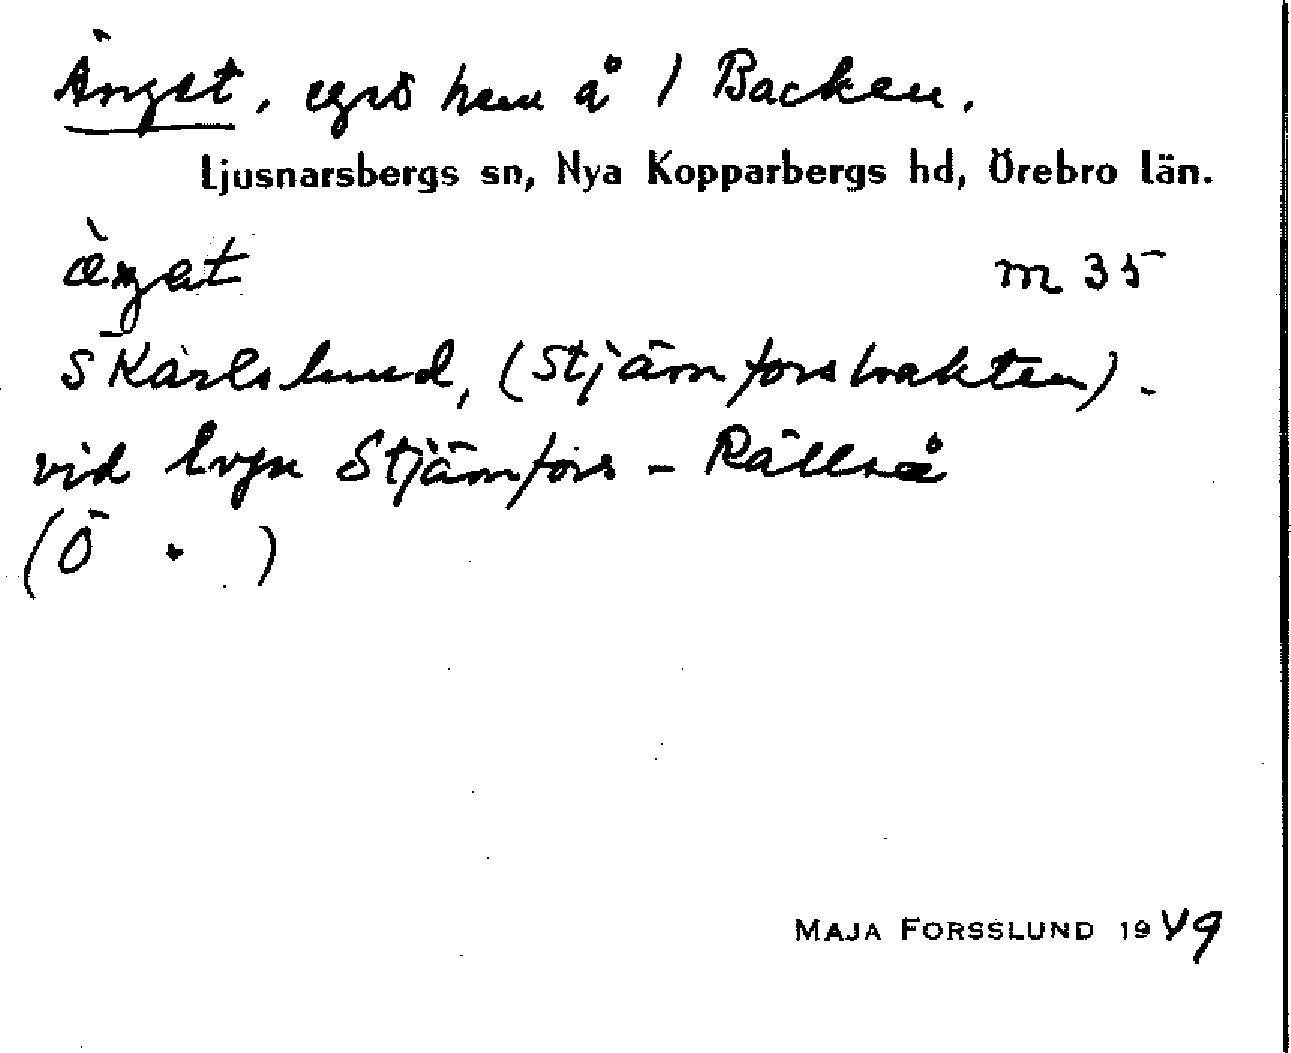 Ängst, egns hem å 1 Backen.
Ljusnarsbergs sn, Nya Kopparbergs hd, Örebro län.
m 35
S Karlslund, (Stjärnforstrakten).
vid lvgn Stjärnfors - Rällså
(Ö . )
MAJA FORSSLUND 1949